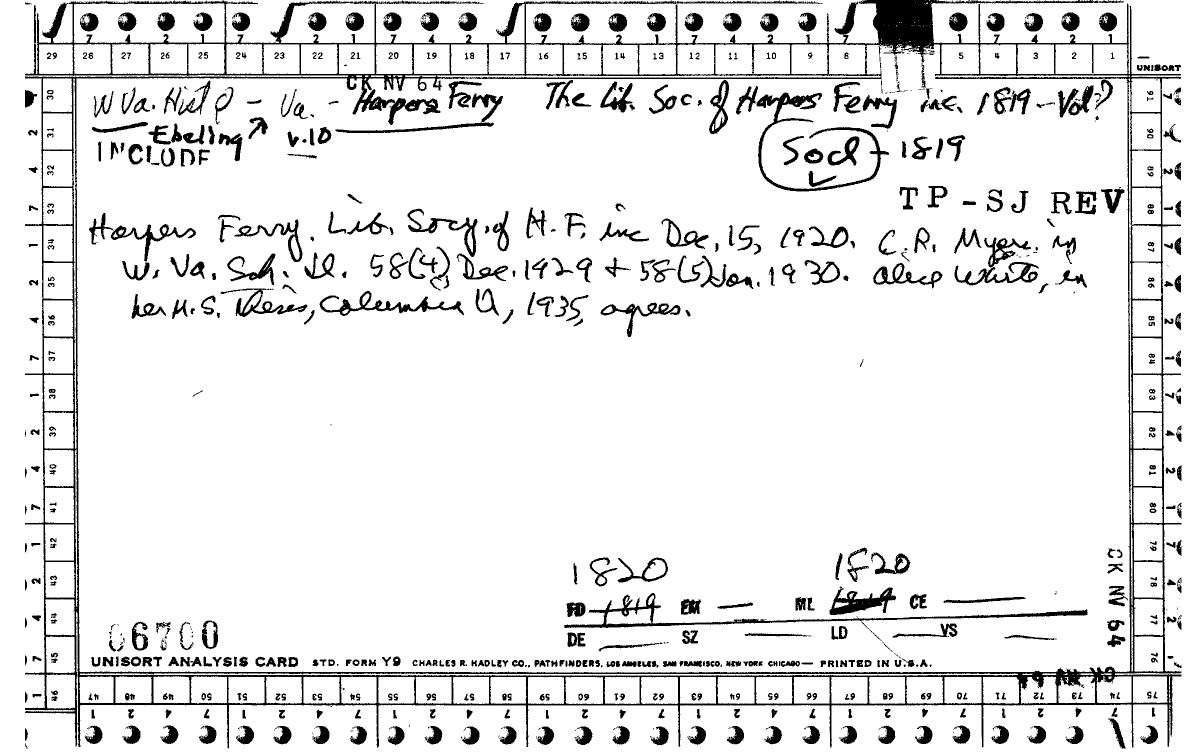 7 4 2 1 7 4 2 1 7 4 2 1 7 4 2 1 7 4 2 1 7 4 2 1
29 28 27 26 25 24 23 22 21 20 19 18 17 16 15 14 13 12 11 10 9 8 7 5 4 3 2 1
UNISORT
CK NV 64
W Va. Hist P - Va. - Harpers Ferry The Lib. Soc. of Harpers Ferry inc. 1819 - Vol?
Ebeling ↗ v.10
INCLUDE
Socl - 1819
TP - SJ REV
Harpers Ferry. Lib. Socy. of H. F. inc Dec. 15, 1920. C.R. Myers in
W. Va. Sch. Jl. 58(4) Dec. 1929 + 58(5) Jan. 1930. Alice White, in
her M.S. Thesis, Columbia U, 1935, agrees.
1820 1820
FD 1819 EM — ML 1819 CE —
DE — SZ — LD — VS —
06700
UNISORT ANALYSIS CARD STD. FORM Y9 CHARLES R. HADLEY CO., PATHFINDERS, LOS ANGELES, SAN FRANCISCO, NEW YORK CHICAGO — PRINTED IN U.S.A.
CK NV 64
CK NV 64
30 31 32 33 34 35 36 37 38 39 40 41 42 43 44 45 46
91 90 89 88 87 86 85 84 83 82 81 80 79 78 77 76
47 48 49 50 51 52 53 54 55 56 57 58 59 60 61 62 63 64 65 66 67 68 69 70 71 72 73 74 75